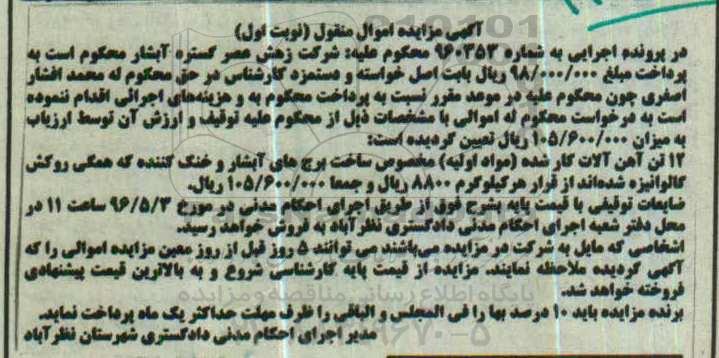 آگهی مزایده اموال منقول (نوبت اول)
در پرونده اجرایی به شماره ۹۶۰۳۵۳ محکوم علیه: شرکت زهش عصر گستره آبشار محکوم است به
پرداخت مبلغ ۹۸/۰۰۰/۰۰۰ ریال بابت اصل خواسته و دستمزد کارشناس در حق محکوم له محمد افشار
اصغری چون محکوم علیه در موعد مقرر نسبت به پرداخت محکوم به و هزینه‌های اجرائی اقدام ننموده
است به درخواست محکوم له اموالی با مشخصات ذیل از محکوم علیه توقیف و ارزش آن توسط ارزیاب
به میزان ۱۰۵/۶۰۰/۰۰۰ ریال تعیین گردیده است:
۱۲ تن آهن آلات کار شده (مواد اولیه) مخصوص ساخت برج های آبشار و خنک کننده که همگی روکش
گالوانیزه شده‌اند از قرار هر کیلوگرم ۸۸۰۰ ریال و جمعا ۱۰۵/۶۰۰/۰۰۰ ریال.
ضایعات توقیفی با قیمت پایه بشرح فوق از طریق اجرای احکام مدنی در مورخ ۹۶/۵/۳ ساعت ۱۱ در
محل دفتر شعبه اجرای احکام مدنی دادگستری نظرآباد به فروش خواهد رسید.
اشخاصی که مایل به شرکت در مزایده می‌باشند می توانند ۵ روز قبل از روز معین مزایده اموالی را که
آگهی گردیده ملاحظه نمایند. مزایده از قیمت پایه کارشناسی شروع و به بالاترین قیمت پیشنهادی
فروخته خواهد شد.
برنده مزایده باید ۱۰ درصد بها را فی المجلس و الباقی را ظرف مهلت حداکثر یک ماه پرداخت نماید.
مدیر اجرای احکام مدنی دادگستری شهرستان نظرآباد